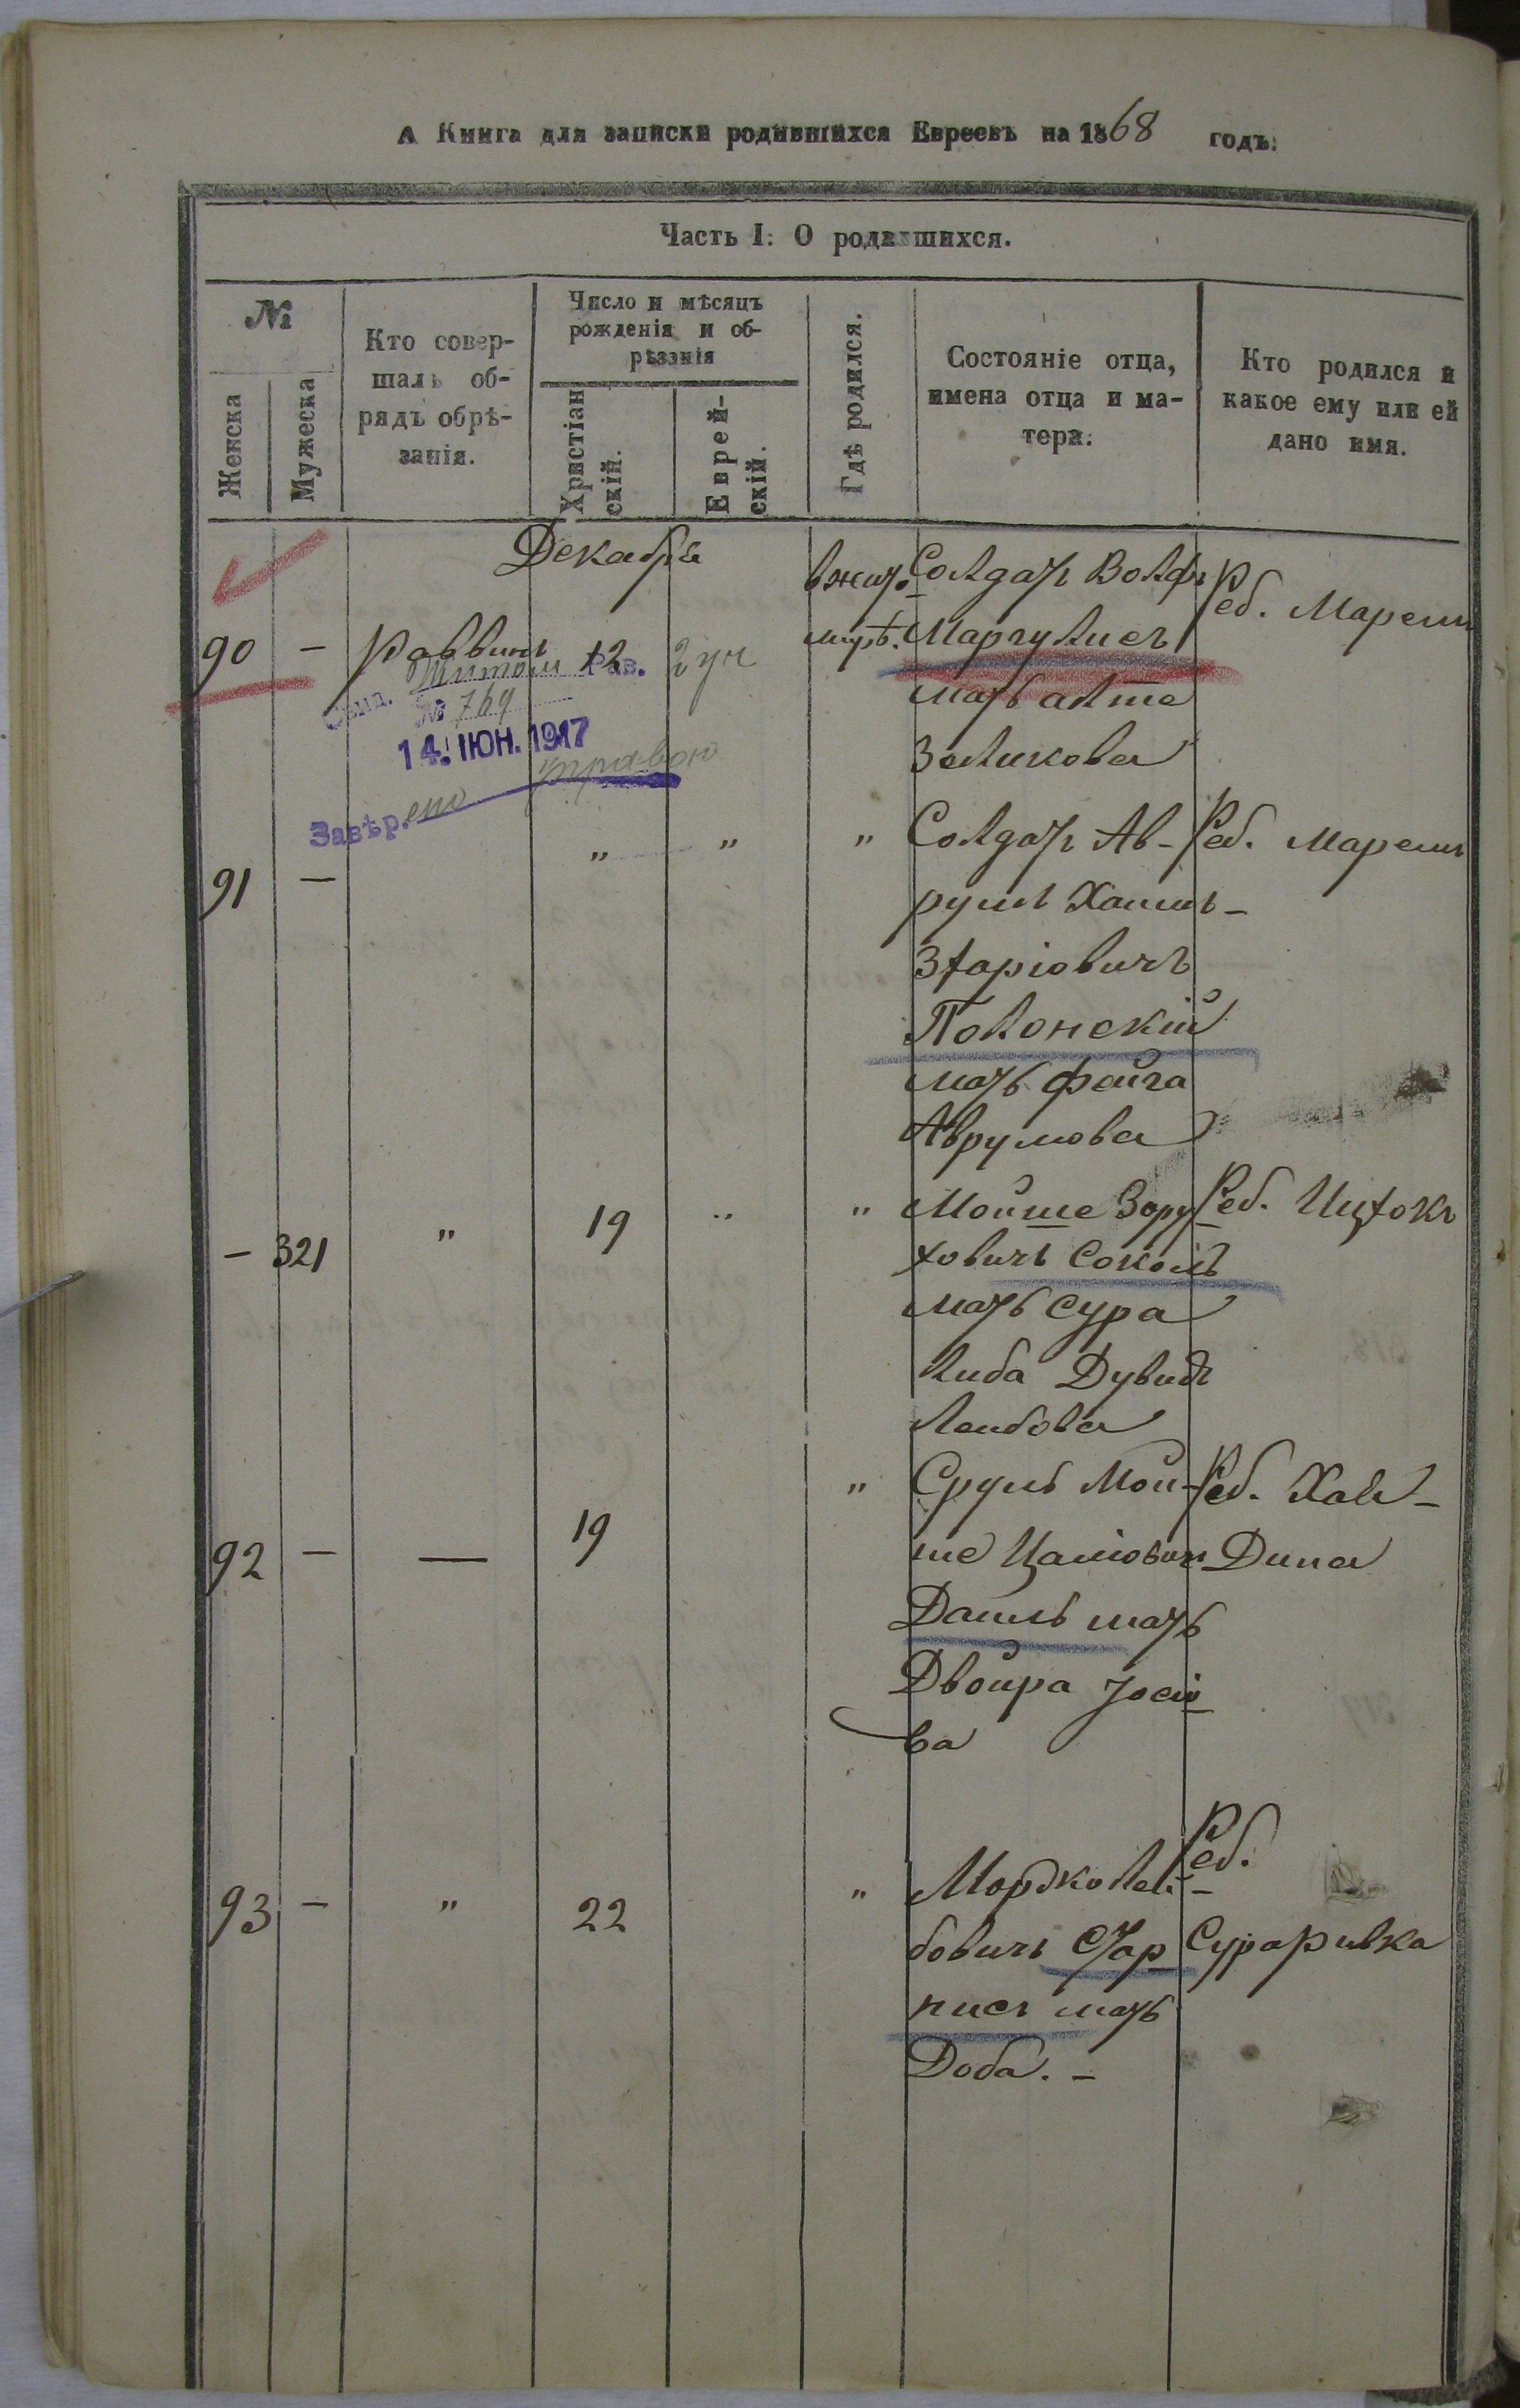 А Книга для записки родившихся Евреевъ на 1868 годъ:
Часть I: О родившихся.
№
Женска
Мужеска
Кто совер-
шалъ об-
рядъ обрѣ-
занія.
Число и мѣсяцъ
рожденія и об-
рѣзанія
Христіан
скій.
Еврей-
скій.
Гдѣ родился.
Состояніе отца,
имена отца и ма-
тери.
Кто родился и
какое ему или ей
дано имя.
Декабря
90 — Раввинъ 12
вжито
мирѣ.
Солдатъ Волфъ
Маргулисъ
мать алте
Зеликова
Реб. Маремъ
Рав.
№ 769
14. ІЮН. 1917
Завѣр.
91 — " " "
Солдатъ Ав-
румъ Хаимъ-
Зхаріовичъ
Полонскій
мать Фейга
Аврумова
Реб. Маремъ
— 321 " 19 " "
Мойше Зору
ховичъ Соколъ
мать Сура
Либа Дувидъ
Леибова
Реб. Ицхокъ
92 — — 19 "
Сруль Мой-
ше Цаліовичъ
Даилъ мать
Двойра Іосіо
ва
Реб. Хая-
Дина
93 — " 22 "
Мордко Леи-
бовичъ Стар
нисъ мать
Доба. -
Реб.
Сураривка